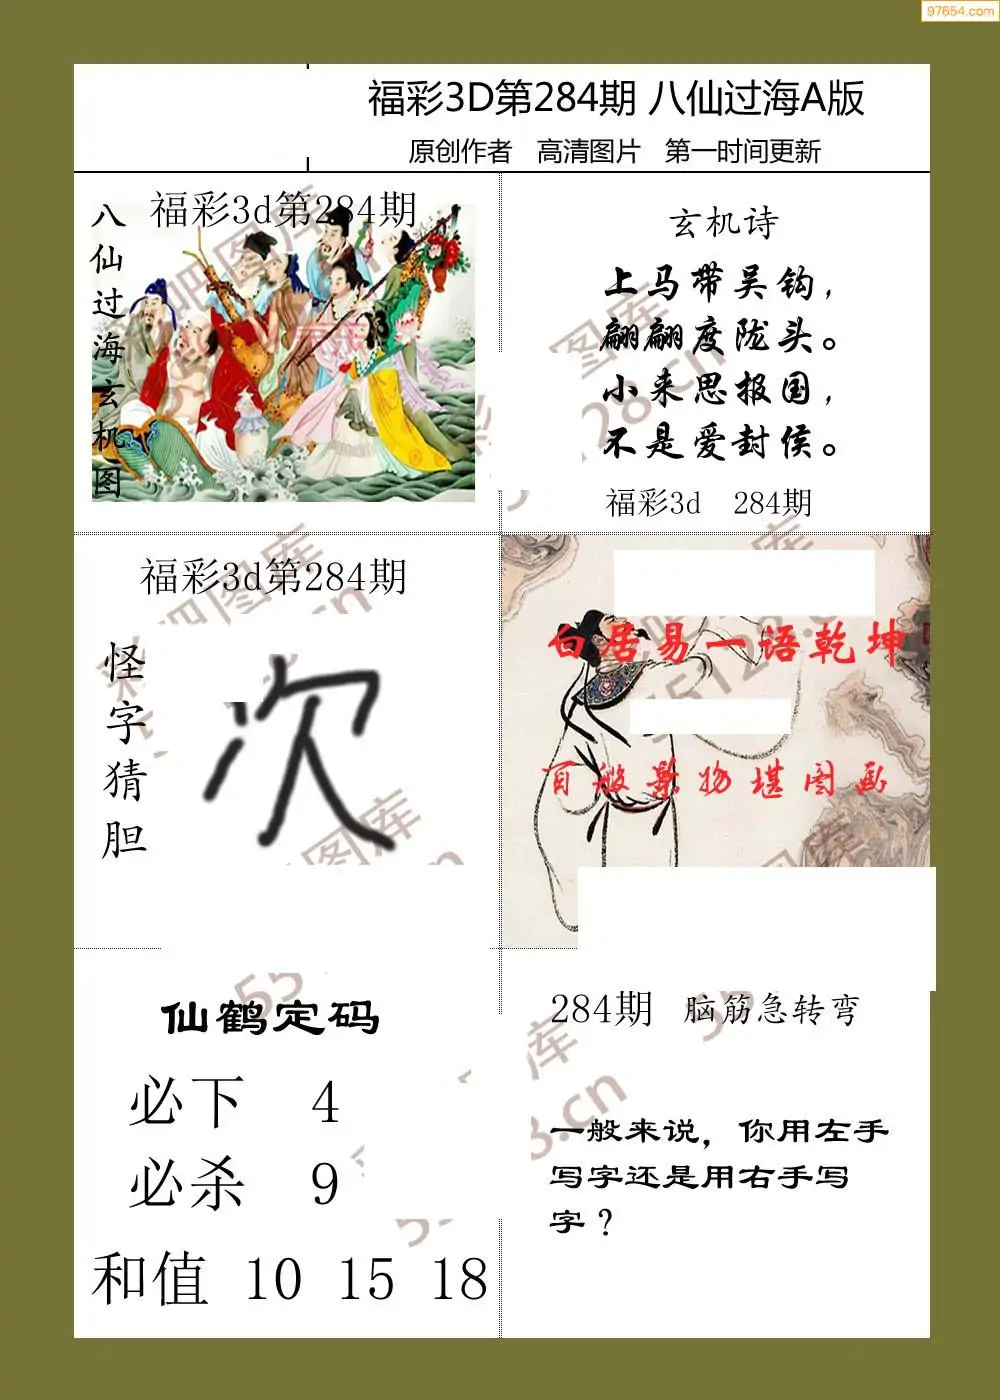 97654.com
福彩3D第284期 八仙过海A版
原创作者 高清图片 第一时间更新
福彩3d第284期
八仙过海玄机图
玄机诗
上马带吴钩，
翩翩度陇头。
小来思报国，
不是爱封侯。
福彩3d 284期
福彩3d第284期
怪字猜胆
次
白居易一语乾坤
百般景物堪图画
仙鹤定码
必下 4
必杀 9
和值 10 15 18
284期 脑筋急转弯
一般来说，你用左手
写字还是用右手写
字？